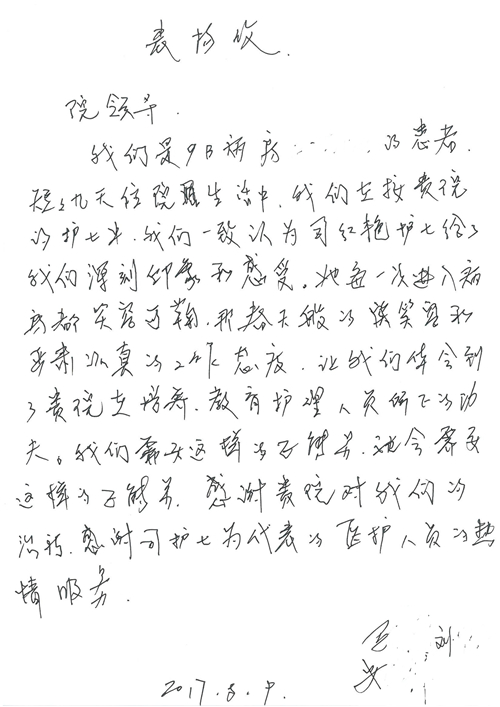 表扬信
院领导
我们是9B病房 的患者
短短九天住院生活中,我们在接贵院
的护士中,我们一致认为司红艳护士给了
我们深刻印象和感受。她每一次进入病
房都笑容可鞠,那春天般的微笑容和
严肃认真的工作态度,让我们体会到
了贵院在培养、教育护理人员所下的功
夫。我们需要这样的正能量,社会需要
这样的正能量,感谢贵院对我们的
治疗,感谢司护士为代表的医护人员的热
情服务.
刘
2017.8.9.